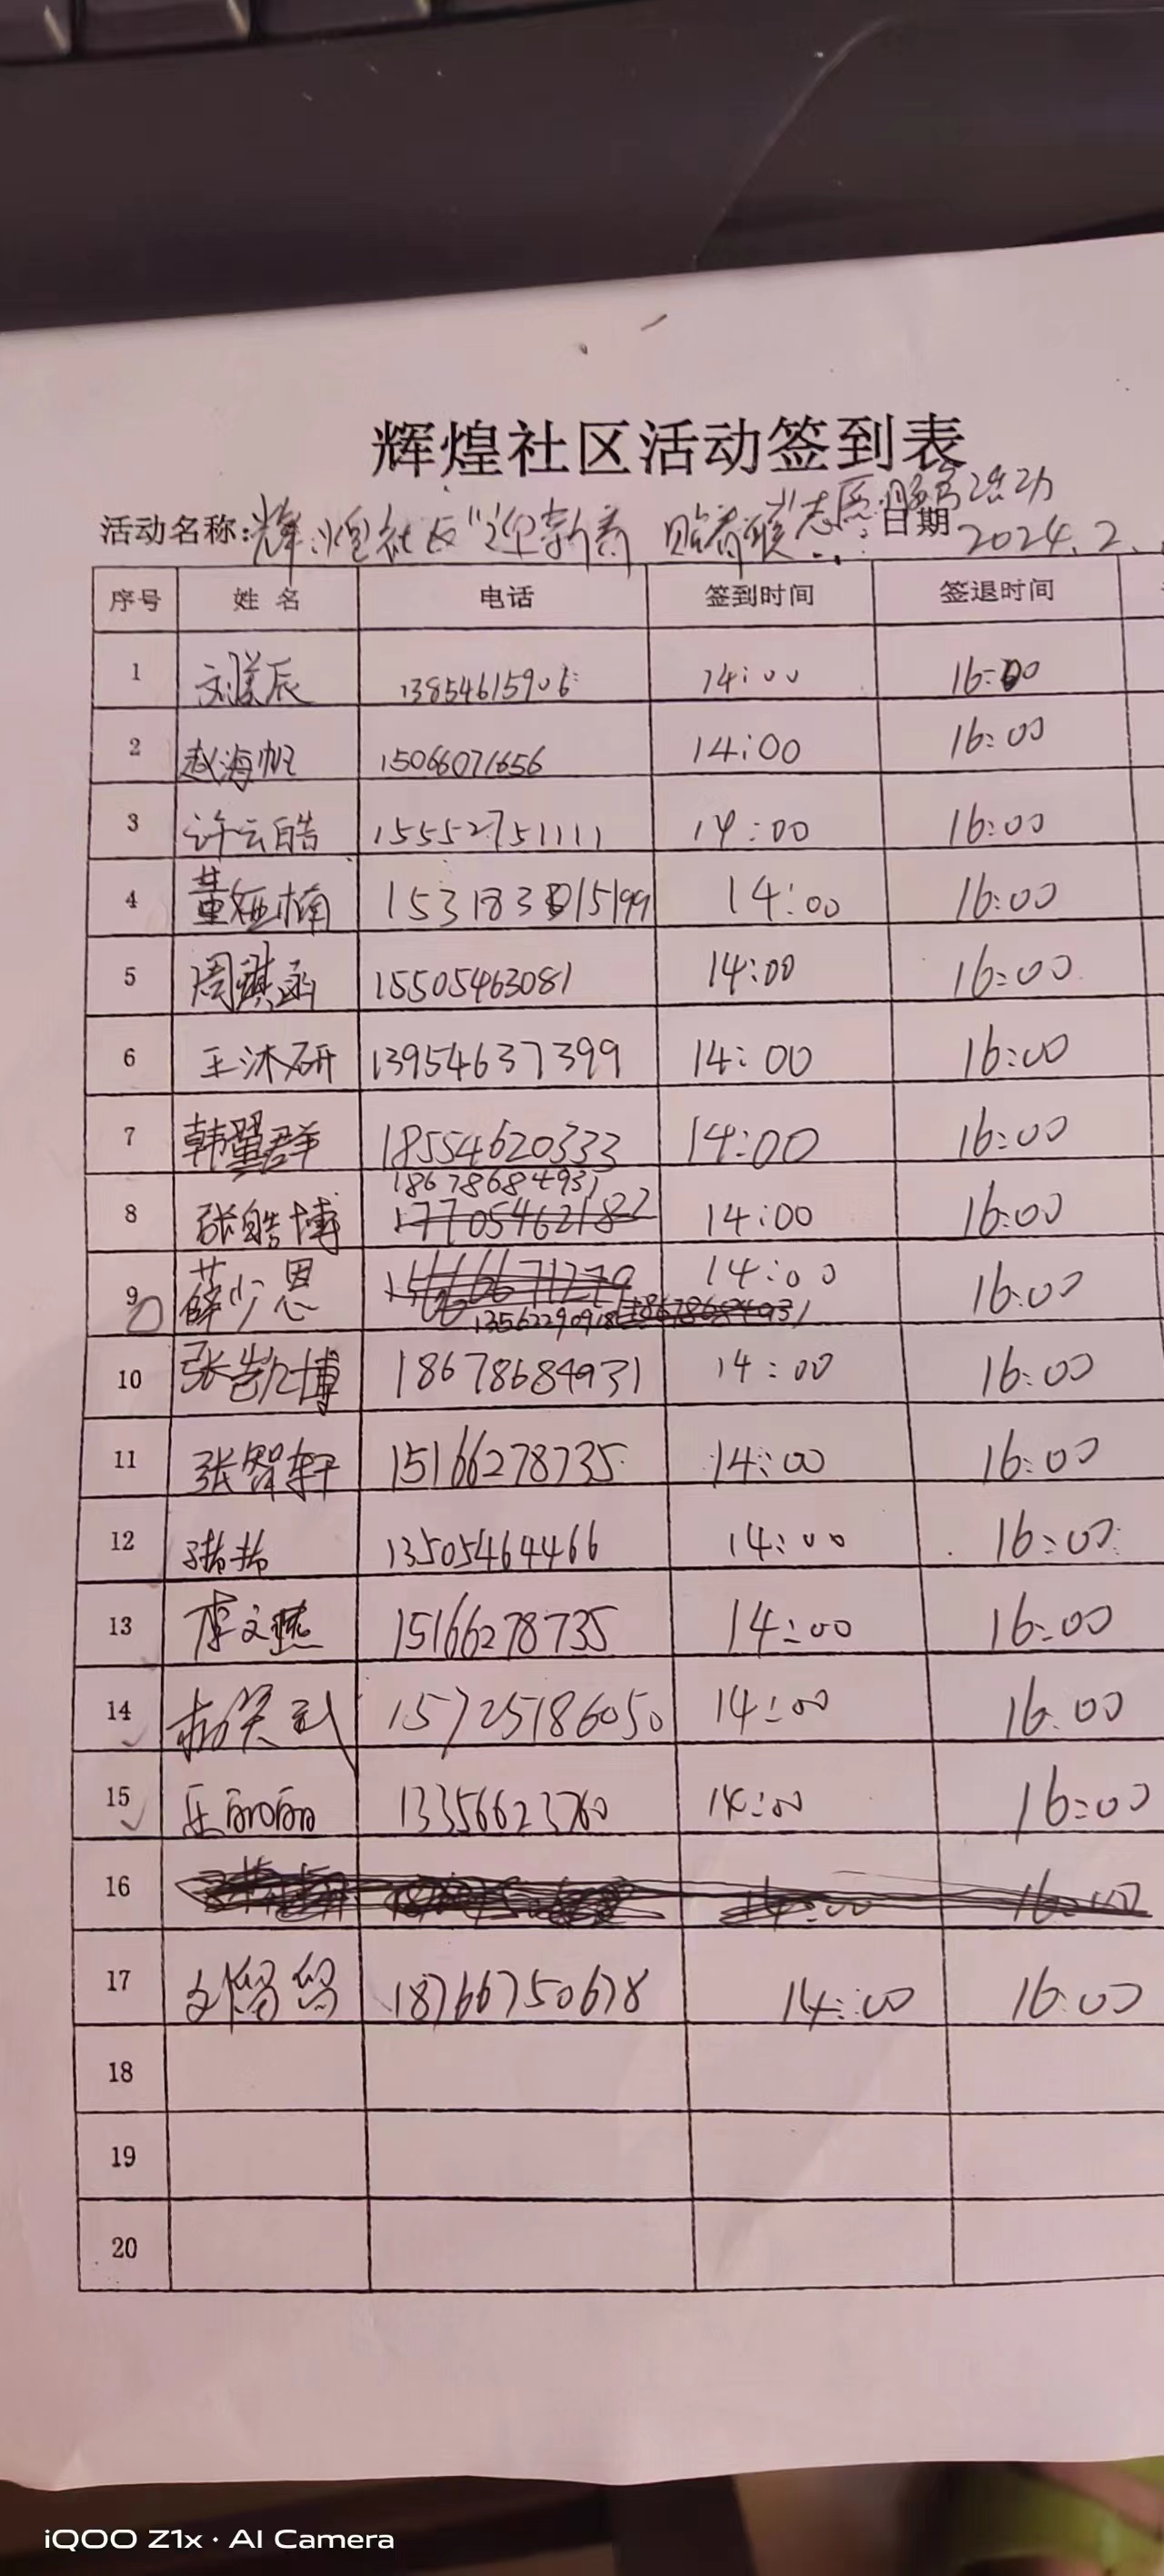 辉煌社区活动签到表
活动名称:辉煌社区"迎新春 贴春联"志愿服务活动 日期 2024.2.
序号 姓名 电话 签到时间 签退时间
1 刘美辰 13854615906 14:00 16:00
2 赵海帆 15066071656 14:00 16:00
3 许云皓 15552751111 14:00 16:00
4 董娅楠 15318315199 14:00 16:00
5 周琪函 15505463081 14:00 16:00
6 王沐妍 13954637399 14:00 16:00
7 韩翼群 18554620333 14:00 16:00
18678684931
8 张皓博 17705462182 14:00 16:00
9 薛少恩 14:00 16:00
13562290918 18678684931
10 张凯博 18678684931 14:00 16:00
11 张智轩 15166278735 14:00 16:00
12 13505464466 14:00 16:00
13 李文燕 15166278735 14:00 16:00
14 15725186050 14:00 16:00
15 丽丽 13356623760 14:00 16:00
16 14:00 16:00
17 18766750678 14:00 16:00
18
19
20
iQOO Z1x · AI Camera